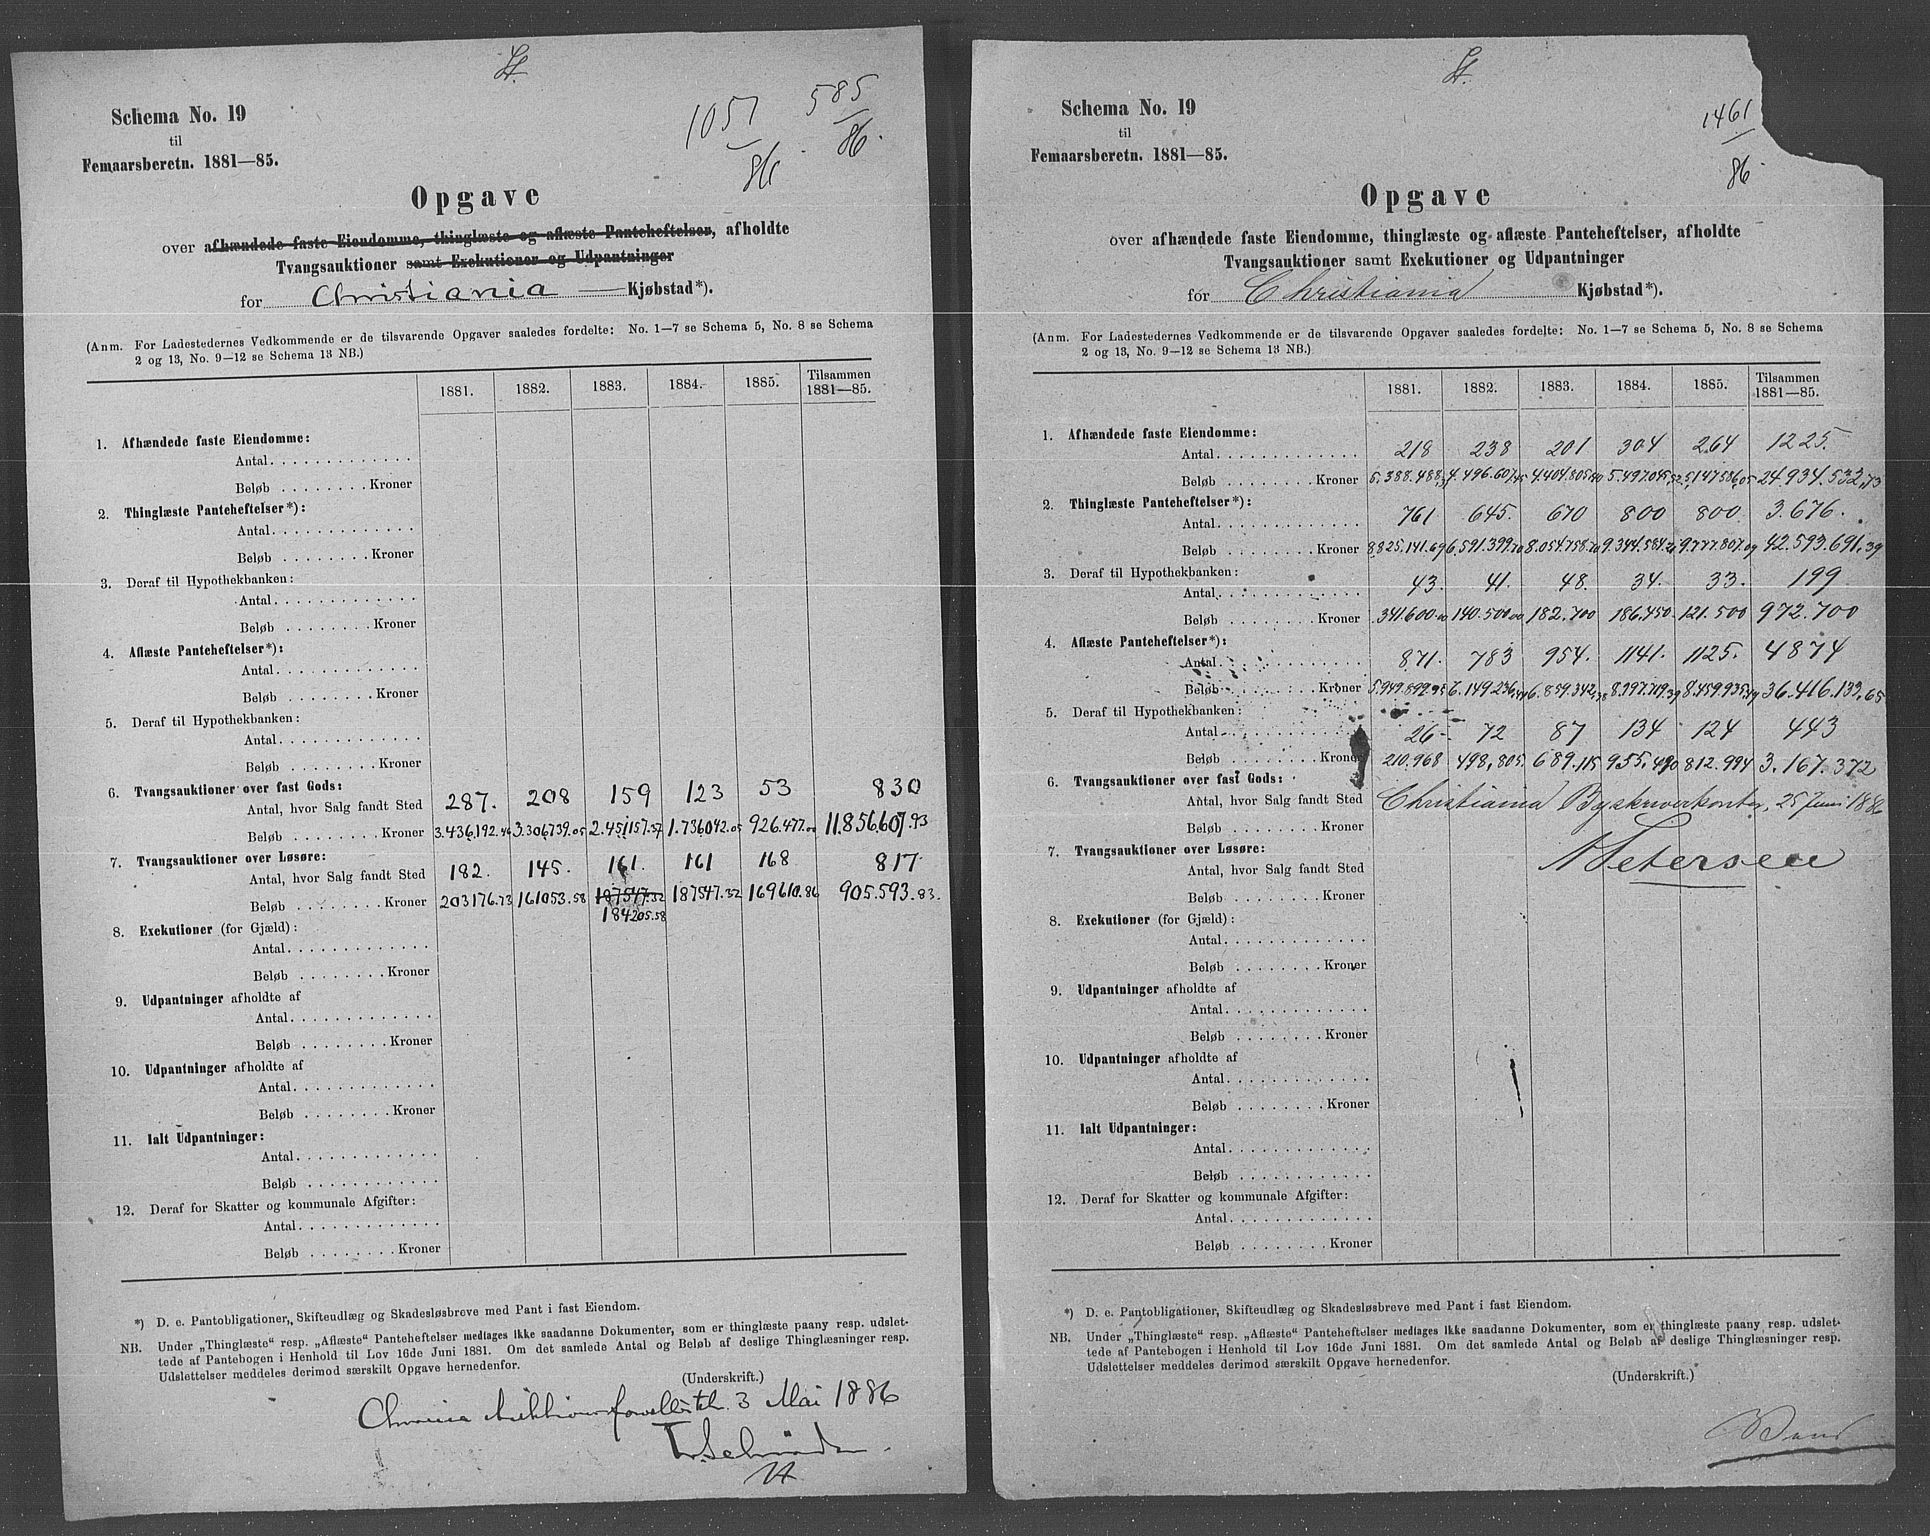 St.
1057/86. 585/86.
Schema No. 19
til
Femaarsberetn. 1881—85.
Opgave
over afhændede faste Eiendomme, thinglæste og aflæste Panteheftelser, afholdte
Tvangsauktioner samt Exekutioner og Udpantninger
for Christiania — Kjøbstad*).
(Anm. For Ladestedernes Vedkommende er de tilsvarende Opgaver saaledes fordelte: No. 1—7 se Schema 5, No. 8 se Schema
2 og 13, No. 9—12 se Schema 13 NB.)
1881. 1882. 1883. 1884. 1885. Tilsammen 1881—85.
1. Afhændede faste Eiendomme:
Antal
Beløb Kroner
2. Thinglæste Panteheftelser*):
Antal
Beløb Kroner
3. Deraf til Hypothekbanken:
Antal
Beløb Kroner
4. Aflæste Panteheftelser*):
Antal
Beløb Kroner
5. Deraf til Hypothekbanken:
Antal
Beløb Kroner
6. Tvangsauktioner over fast Gods:
Antal, hvor Salg fandt Sted 287. 208 159 123 53 830
Beløb Kroner 3.436,192.46 3.306739.05 2.451157.57 1.736042.05 926.477.00 11.856,607.93
7. Tvangsauktioner over Løsøre:
Antal, hvor Salg fandt Sted 182. 145. 161. 161 168 817
Beløb Kroner 203176.73 161053.58 187547.32 187547.32 169610.86 905.593.83.
184205.58
8. Exekutioner (for Gjæld):
Antal
Beløb Kroner
9. Udpantninger afholdte af
Antal
Beløb Kroner
10. Udpantninger afholdte af
Antal
Beløb Kroner
11. Ialt Udpantninger:
Antal
Beløb
12. Deraf for Skatter og kommunale Afgifter:
Antal
Beløb Kroner
*) D. e. Pantobligationer, Skifteudlæg og Skadesløsbreve med Pant i fast Eiendom.
NB. Under „Thinglæste“ resp. „Aflæste“ Panteheftelser medtages ikke saadanne Dokumenter, som er thinglæste paany resp. udslet-
tede af Pantebogen i Henhold til Lov 16de Juni 1881. Om det samlede Antal og Beløb af deslige Thinglæsninger resp.
Udslettelser meddeles derimod særskilt Opgave hernedenfor.
(Underskrift.)
3 Mai 1886
St.
1461/86.
Schema No. 19
til
Femaarsberetn. 1881—85.
Opgave
over afhændede faste Eiendomme, thinglæste og aflæste Panteheftelser, afholdte
Tvangsauktioner samt Exekutioner og Udpantninger
for Christiania Kjøbstad*).
(Anm. For Ladestedernes Vedkommende er de tilsvarende Opgaver saaledes fordelte: No. 1—7 se Schema 5, No. 8 se Schema
2 og 13, No. 9—12 se Schema 13 NB.)
1881. 1882. 1883. 1884. 1885. Tilsammen 1881—85.
1. Afhændede faste Eiendomme:
Antal 218 238 201 304 264 1225.
Beløb Kroner 4.496.607,45 4.404.805,40 24.934.532,73
2. Thinglæste Panteheftelser*):
Antal 761 645. 670 800 800 3.676.
Beløb Kroner 8.825.141.69 6,591.399.70 8.054.758.70 9.777.807.09 42.593.691,39
3. Deraf til Hypothekbanken:
Antal 43. 41. 48. 34. 33. 199
Beløb Kroner 341.600.00 140.500.00 182.700 186.450. 121.500 972.700
4. Aflæste Panteheftelser*):
Antal 871. 783 954. 1141. 1125. 4874
Beløb Kroner 5.949.899.95 6.149.236,44 6.859.342,38 8.459.935,19 36.416.133,65
5. Deraf til Hypothekbanken:
Antal 26 72 87 134 124 443
Beløb Kroner 210.968 498,805. 689.115 955.490 812.994 3.167.372
6. Tvangsauktioner over fast Gods:
Antal, hvor Salg fandt Sted Christiania Byskriverkontor, 25 Juni 1886
Beløb Kroner
7. Tvangsauktioner over Løsøre: Petersen
Antal, hvor Salg fandt Sted
Beløb Kroner
8. Exekutioner (for Gjæld):
Antal
Beløb Kroner
9. Udpantninger afholdte af
Antal
Beløb Kroner
10. Udpantninger afholdte af
Antal
Beløb Kroner
11. Ialt Udpantninger:
Antal
Beløb
12. Deraf for Skatter og kommunale Afgifter:
Antal
Beløb Kroner
*) D. e. Pantobligationer, Skifteudlæg og Skadesløsbreve med Pant i fast Eiendom.
NB. Under „Thinglæste“ resp. „Aflæste“ Panteheftelser medtages ikke saadanne Dokumenter, som er thinglæste paany resp. udslet-
tede af Pantebogen i Henhold til Lov 16de Juni 1881. Om det samlede Antal og Beløb af deslige Thinglæsninger resp.
Udslettelser meddeles derimod særskilt Opgave hernedenfor.
(Underskrift.)